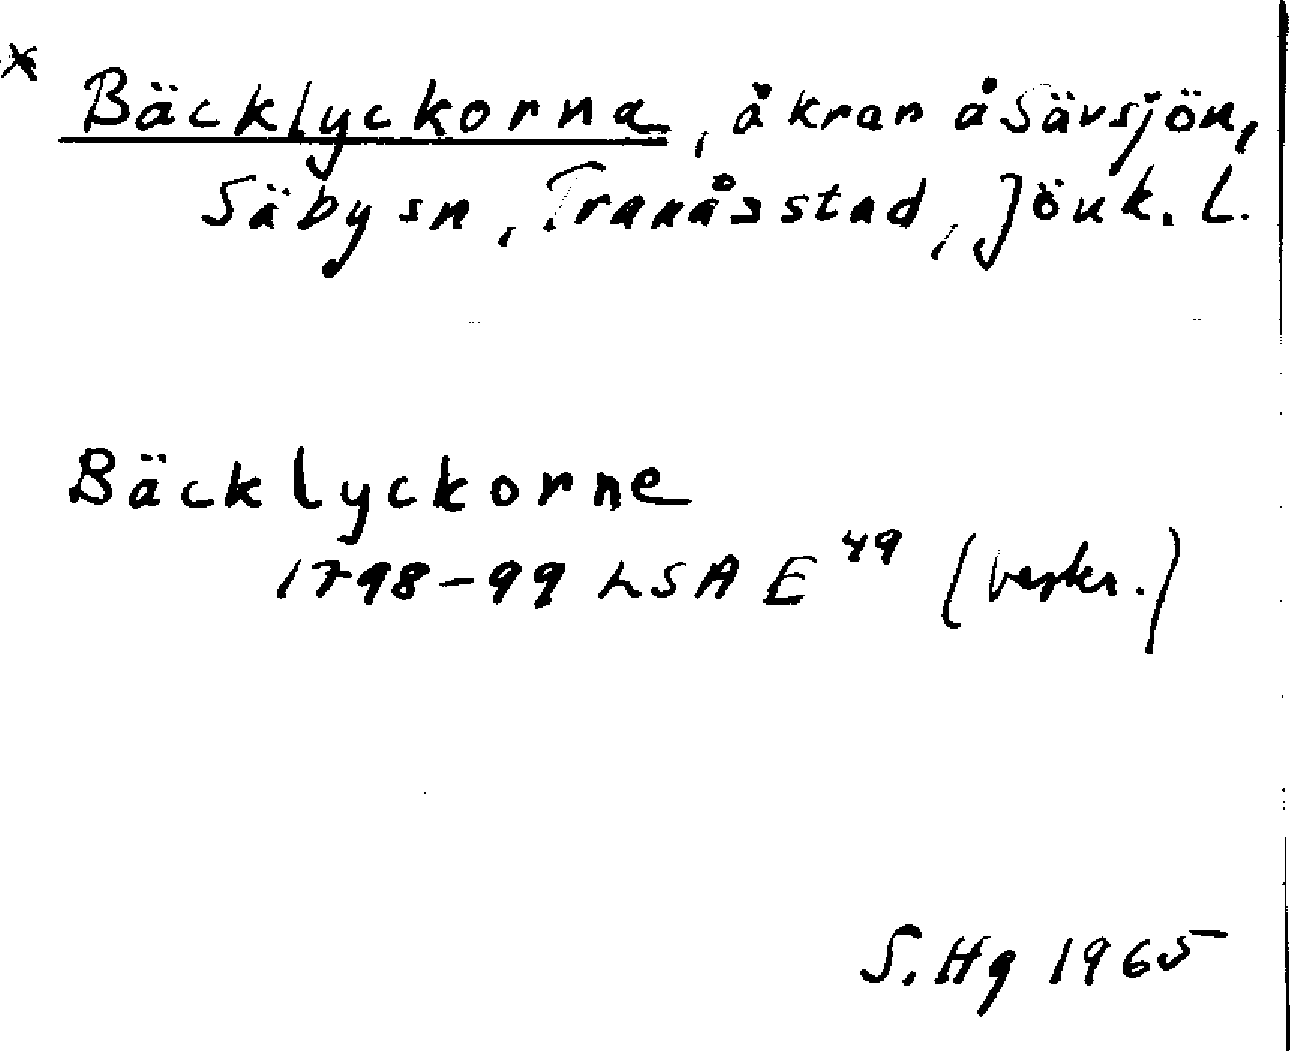 x Bäcklyckorna, åkrar å Sävsjön,
Säby sn, Tranås stad, Jönk. L.
Bäcklyckorne
1798-99 LSA E 49
S. Hg 1965